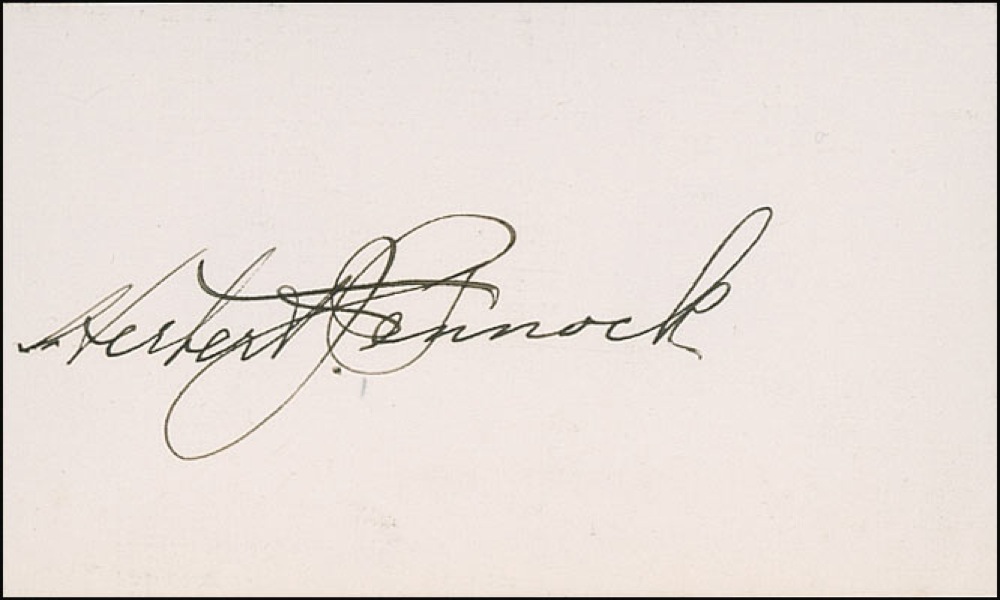 Herbert J. Pennock